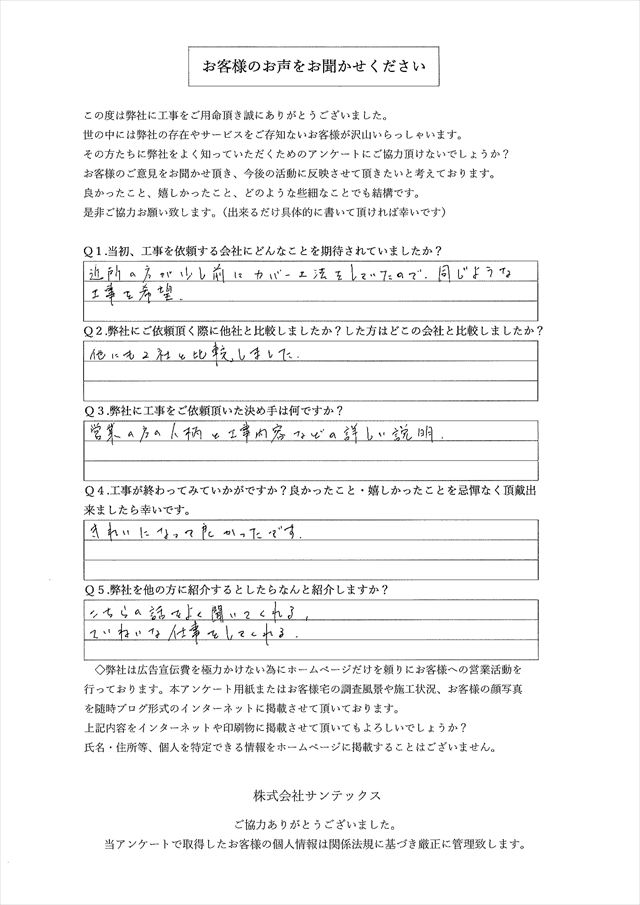 お客様のお声をお聞かせください
この度は弊社に工事をご用命頂き誠にありがとうございました。
世の中には弊社の存在やサービスをご存知ないお客様が沢山いらっしゃいます。
その方たちに弊社をよく知っていただくためのアンケートにご協力頂けないでしょうか？
お客様のご意見をお聞かせ頂き、今後の活動に反映させて頂きたいと考えております。
良かったこと、嬉しかったこと、どのような些細なことでも結構です。
是非ご協力お願い致します。（出来るだけ具体的に書いて頂ければ幸いです）
Ｑ１.当初、工事を依頼する会社にどんなことを期待されていましたか？
近所の方が少し前にカバー工法をしていたので、同じような
工事を希望.
Ｑ２.弊社にご依頼頂く際に他社と比較しましたか？した方はどこの会社と比較しましたか？
他にも2社と比較しました.
Ｑ３.弊社に工事をご依頼頂いた決め手は何ですか？
営業の方の人柄と工事内容などの詳しい説明.
Ｑ４.工事が終わってみていかがですか？良かったこと・嬉しかったことを忌憚なく頂戴出
来ましたら幸いです。
きれいになって良かったです.
Ｑ５.弊社を他の方に紹介するとしたらなんと紹介しますか？
こちらの話をよく聞いてくれる,
ていねいな仕事をしてくれる.
◇弊社は広告宣伝費を極力かけない為にホームページだけを頼りにお客様への営業活動を
行っております。本アンケート用紙またはお客様宅の調査風景や施工状況、お客様の顔写真
を随時ブログ形式のインターネットに掲載させて頂いております。
上記内容をインターネットや印刷物に掲載させて頂いてもよろしいでしょうか？
氏名・住所等、個人を特定できる情報をホームページに掲載することはございません。
株式会社サンテックス
ご協力ありがとうございました。
当アンケートで取得したお客様の個人情報は関係法規に基づき厳正に管理致します。